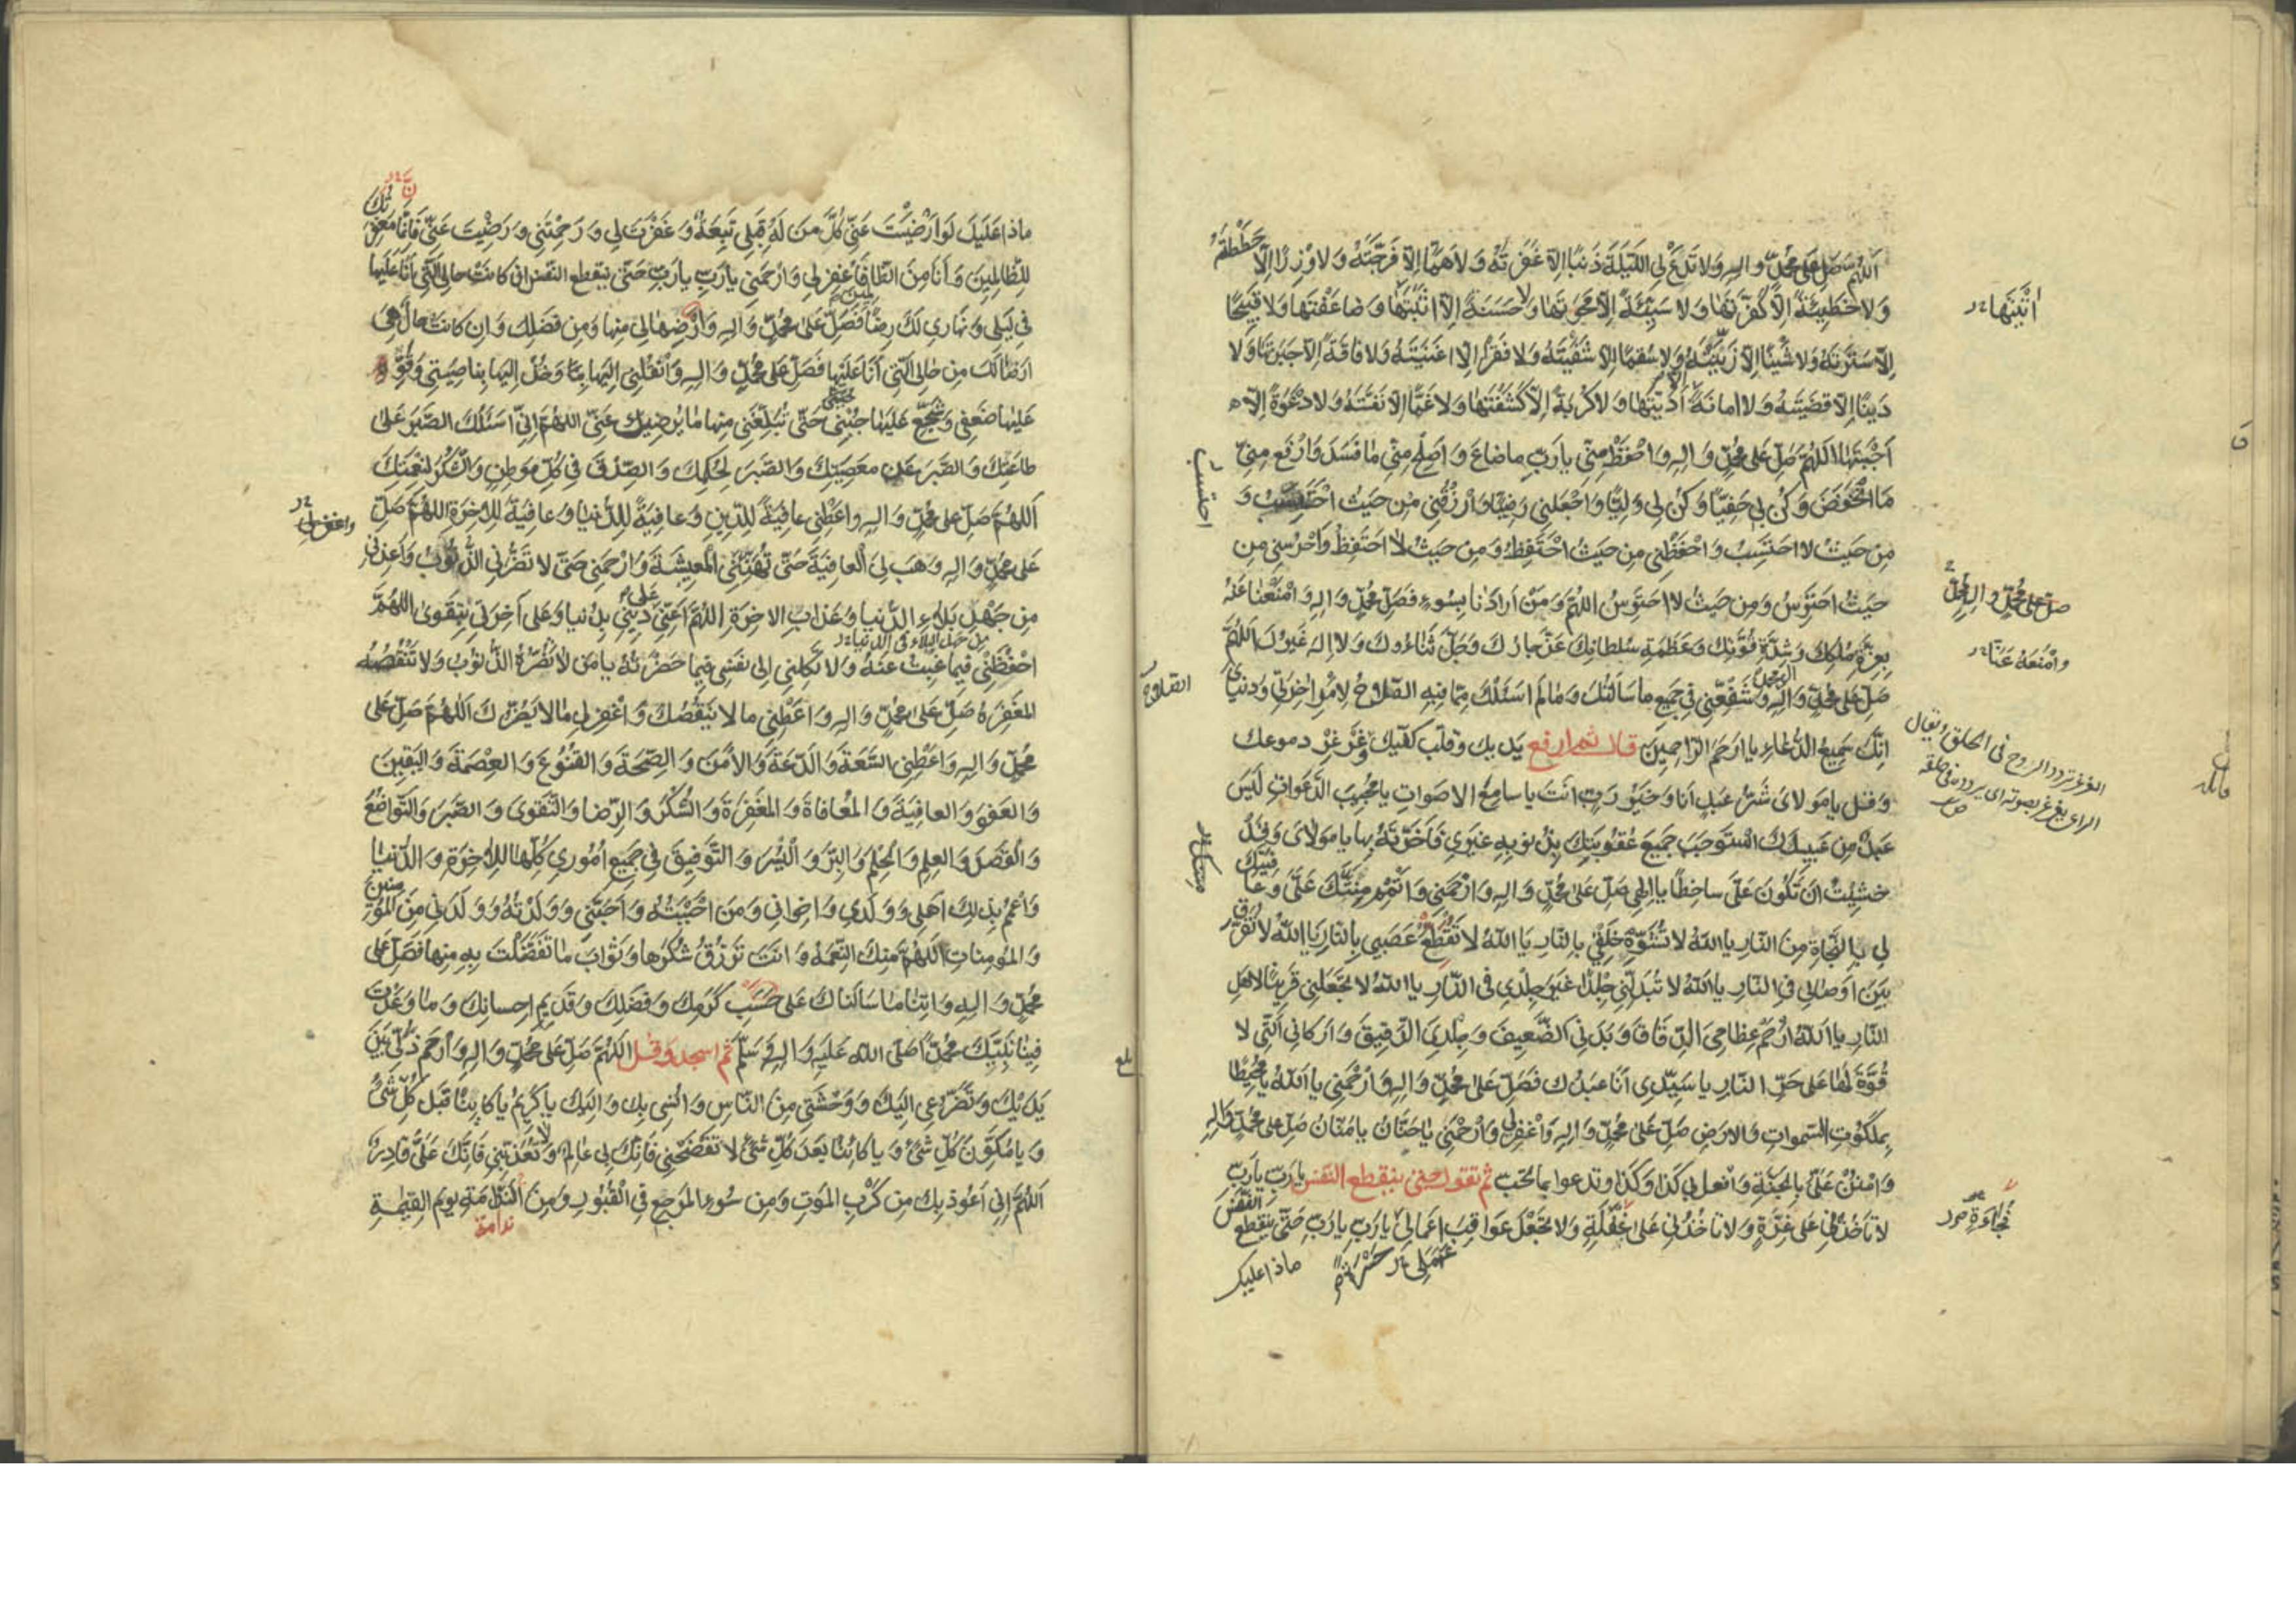 اللهم صل على محمد واله ولا تدع لي الليلة ذنبا الا غفرته ولا هما الا فرجته ولا وزرا الا حططته
ولا خطيئة الا كفرتها ولا سيئة الا محوتها ولا حسنة الا اثبتها وضاعفتها ولا قبيحا
الا سترته ولا شينا الا زينته ولا سقما الا شفيته ولا فقرا الا اغنيته ولا فاقة الا جبرتها ولا
دينا الا قضيته ولا امانة الا اديتها ولا كربة الا كشفتها ولا غما الا نفسته ولا دعوة الا
اجبتها اللهم صل على محمد واله واحفظ مني يا رب ما ضاع واصلح مني ما فسد وارفع مني
ما انخفض وكن بي حفيا وكن لي وليا واجعلني رضيا وارزقني من حيث احتسب و
من حيث لا احتسب واحفظني من حيث احتفظ ومن حيث لا احتفظ واحرسني من
حيث احترس ومن حيث لا احترس اللهم ومن ارادنا بسوء فصل محمد واله وامنعنا عنه
بعزة ملكك وشدة قوتك وعظمة سلطانك عز جارك وجل ثناءوك ولا اله غيرك اللهم
صل على محمد واله وشفعني في جميع ما سألتك وما لم اسئلك مما فيه الصلاح لامر اخرتي ودنياي
انك سميع الدعاء يا ارحم الراحمين قال ثم ارفع يديك وقلب كفيك وغرغر دموعك
وقل يا مولاى شر عبد انا وخير رب انت يا سامع الاصوات يا مجيب الدعوات ليس
عبد من عبيدك استوجب جميع عقوبتك بذنوبه غيري فاخرته بها يا مولاى وقد
خشيت ان تكون على ساخطا يا الهي صل على محمد واله وارحمني واتمم منتك على وعافيتك
لي بالنجاة من النار يا الله لا تشوه خلقي بالنار يا الله لا تقطع عصبي بالنار يا الله لا تفرق
بين اوصالي في النار يا الله لا تبدلني جلدا غير جلدي في النار يا الله لا تجعلني قرينا لاهل
النار يا الله ارحم عظامي الدقاق وبدني الضعيف وجلدي الرقيق واركاني التي لا
قوة لها على حر النار يا سيدي انا عبدك فصل على محمد واله وارحمني يا الله يا محيطا
بملكوت السموات والارض صل على محمد واله واغفر لي وارحمني يا حنان يا منان صل على محمد واله
وامنن على بالجنة وافعل لي كذا وكذا وتدعوا بما تحب ثم تقول حتى ينقطع النفس يا رب يا رب
لا تاخذني على غرة ولا تاخذني على غفلة ولا تجعل عواقب اعمالي يا رب يا رب حتى ينقطع النفس
عملي حسرة
ماذا عليك
اثبتها
صل على محمد وال محمد
وامنعه عنا
الغرغرة تردد الروح في الحلق ويقال
الراعي يغرغر بصوته اي يردده في حلقه
احتسب
الصلاح
ماذا عليك لو ارضيت عني كل من له قبلي تبعة وغفرت لي ورحمتني ورضيت عني فانما مغفرتك
للظالمين وانا من الظالمين فاغفر لي وارحمني يا رب يا رب حتى ينقطع النفس ان كانت حالي التي انا عليها
في ليلي ونهاري لك رضا فصل على محمد واله وارضها لي منها ومن فضلك وان كانت حال هى
ارضا لك من حالي التي انا عليها فصل على محمد واله وانقلني اليها بها وخذ اليها بناصيتي وقو
عليها ضعفي وشجع عليها جبني حتى تبلغني منها ما يرضيك عني اللهم اني اسئلك الصبر على
طاعتك والصبر عن معصيتك والصبر لحكمك والصدق في كل موطن والشكر لنعمتك
اللهم صل على محمد واله واعطني عافية للدين وعافية للدنيا وعافية للاخرة اللهم صل
على محمد واله وهب لي العافية حتى تهنئني المعيشة وارحمني حتى لا تضرني الذنوب واعذني
من جهد بلاء الدنيا وعذاب الاخرة اللهم اعني على ديني بدنيا وعلى آخرتي بتقوى اللهم
احفظني فيما غبت عنه ولا تكلني الى نفسي فيما حضرته يا من لا تضره الذنوب ولا تنقصه
المغفرة صل على محمد واله واعطني ما لا ينقصك واغفر لي ما لا يضرك اللهم صل على
محمد واله واعطني السعة والدعة والامن والصحة والقنوع والعصمة واليقين
والعفو والعافية والمعافاة والمغفرة والشكر والرضا والتقوى والصبر والتواضع
والقصد والعلم والحلم والبر واليسر والتوفيق في جميع اموري كلها للاخرة والدنيا
واعمم بذلك اهلي وولدي واخواني ومن احببته واحبني وولدته وولدني من المؤمنين
والمومنات اللهم منك النعمة وانت ترزق شكرها وثواب ما تفضلت به منها فصل على
محمد واله واتنا ما سالناك على حسب كرمك وفضلك وقديم احسانك وما وعدت
فينا نبيك محمدا صلى الله عليه واله وسلم ثم اسجد وقل اللهم صل على محمد واله وارحم ذلي بين
يديك وتضرعي اليك ووحشتي من الناس وانسي بك واليك يا كريم يا كائنا قبل كل شئ
ويا مكون كل شئ ويا كائنا بعد كل شئ لا تفضحني فانك بي عالم ولا تعذبني فانك على قادر
اللهم اني اعوذ بك من كرب الموت ومن سوء المرجع في القبور ومن الندامة يوم القيمة
ندامة
واغفر لي
من جهد البلاء في الدنيا